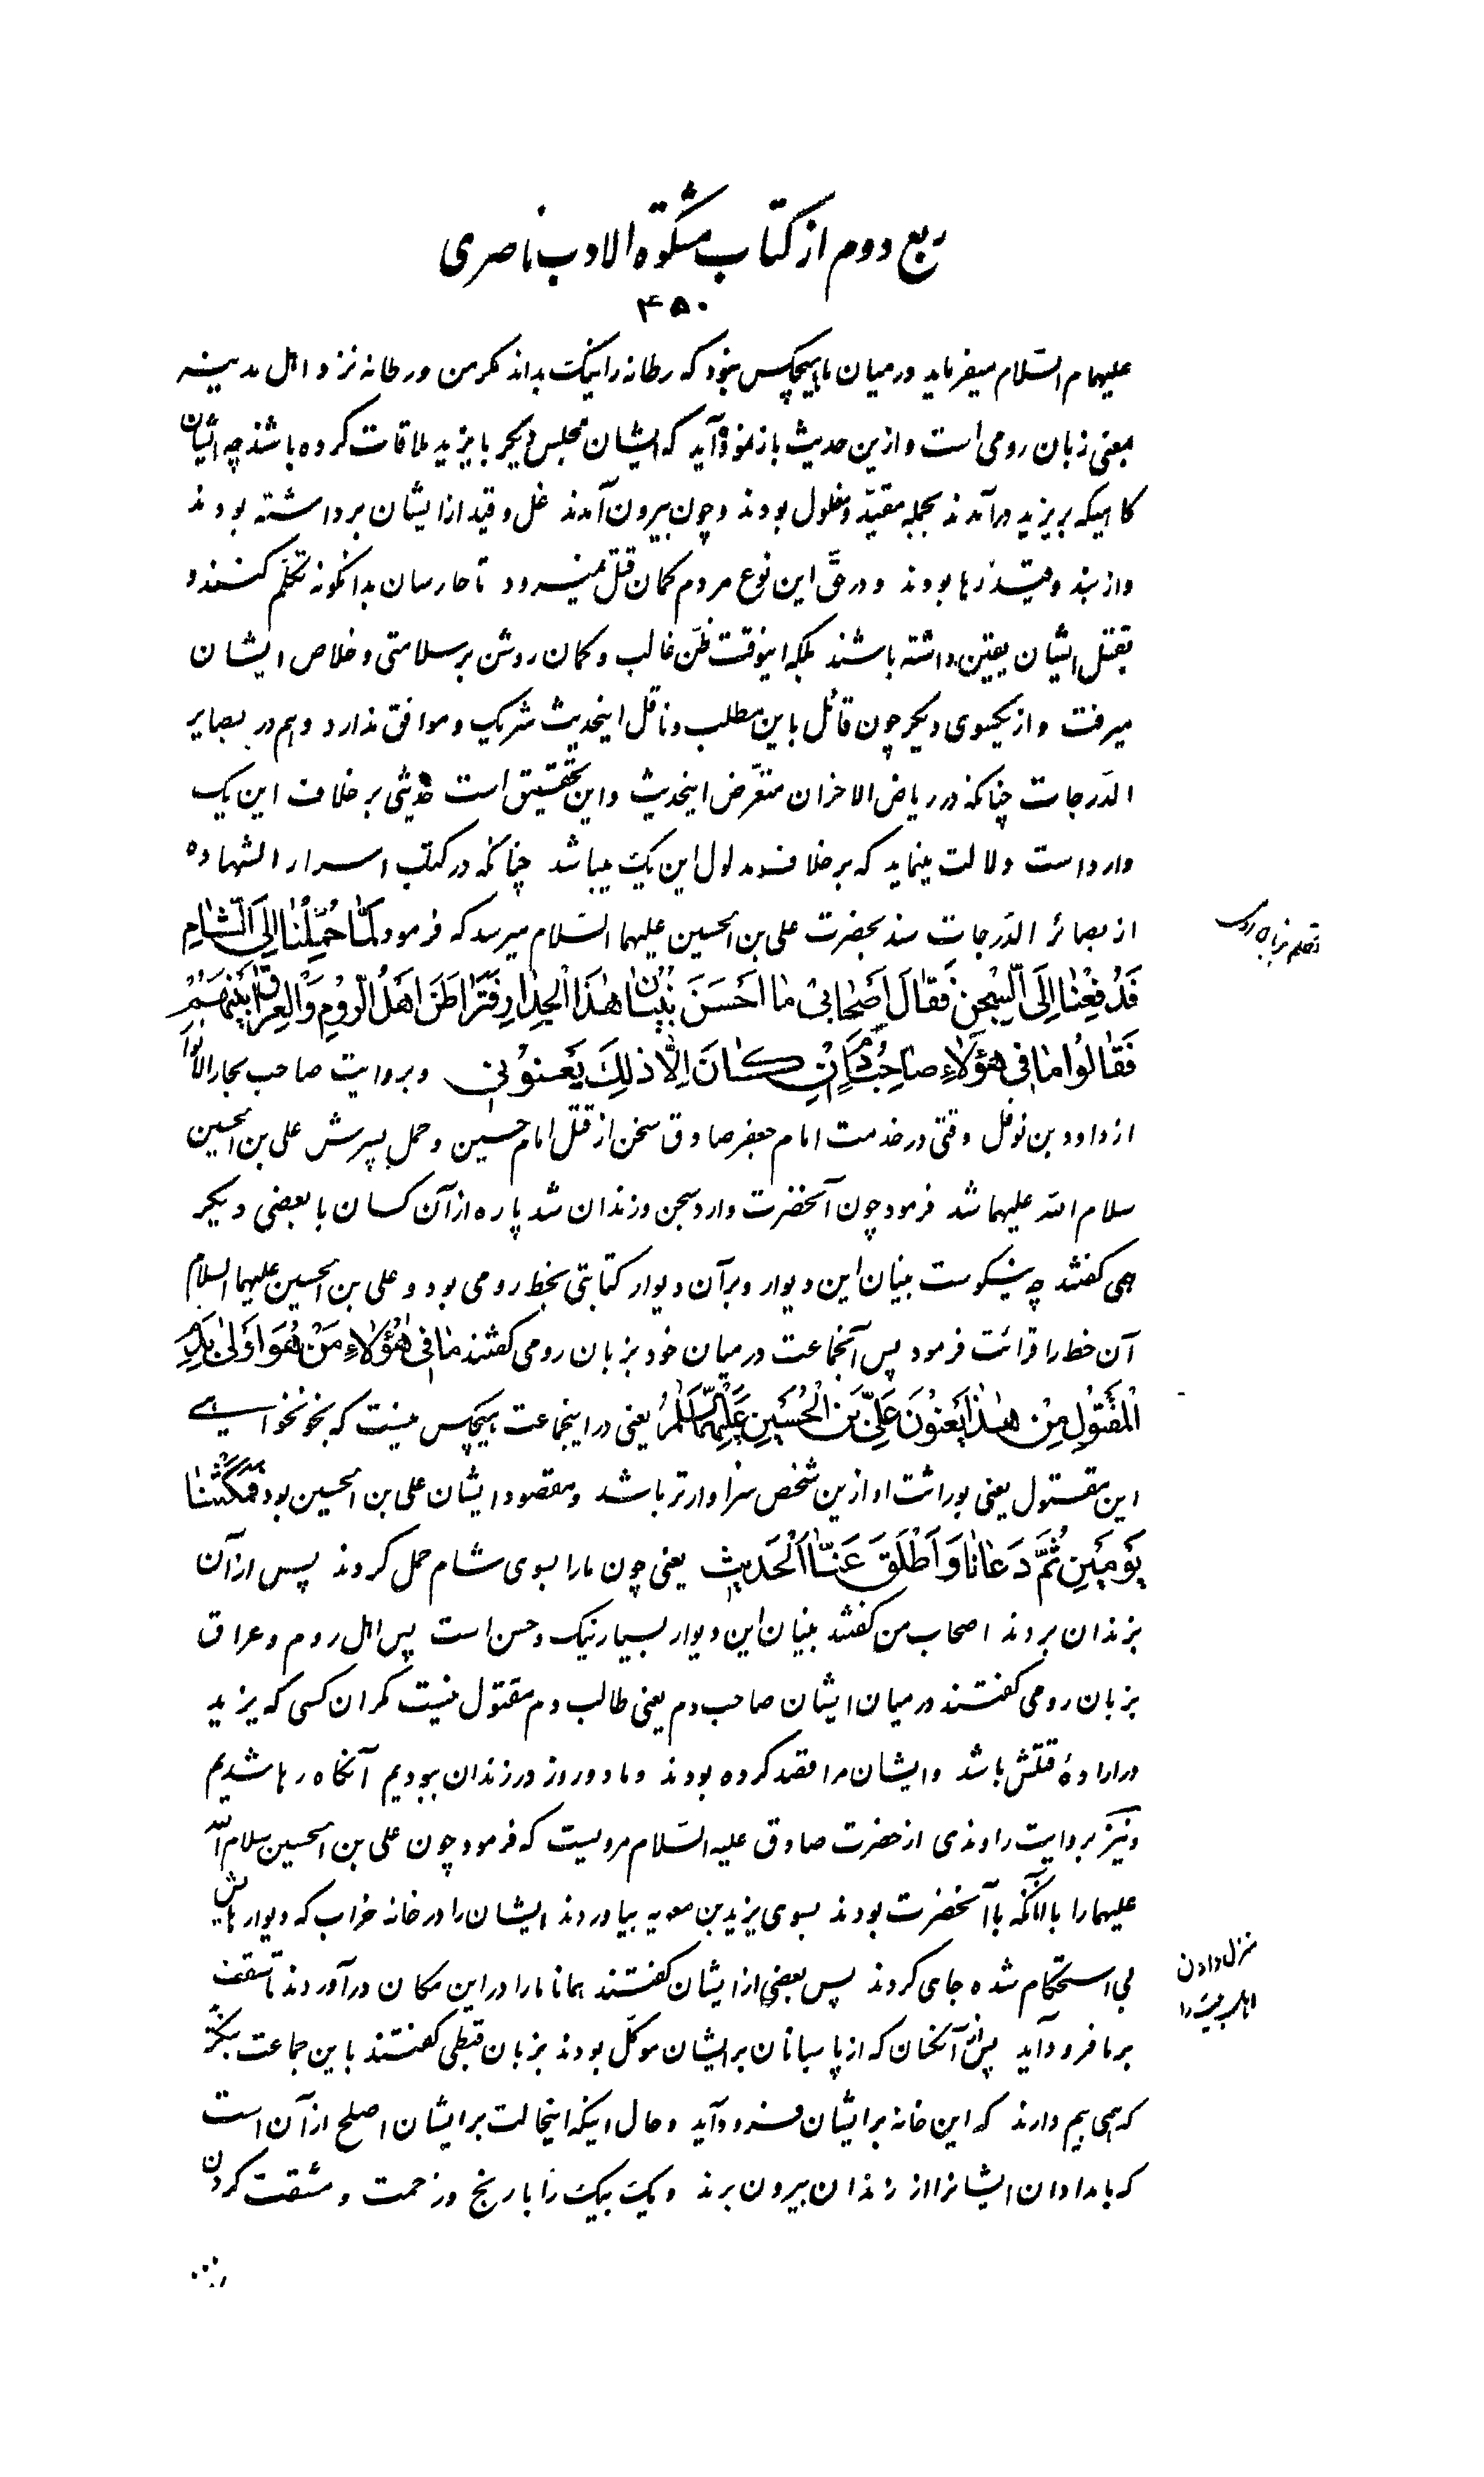 ربع دوم از کتاب مشکوة الادب ناصری
۴۵۰
علیهما السّلام میفرماید در میان ما هیچکس نبود که رطانه را نیک بداند مکر من و رطانه نزد اهل مدینه
بمعنی زبان رومی است و ازین حدیث باز نمود آید که ایشان مجلس دیکر با یزید ملاقات کرده باشند چه ایشان
کاهیکه بر یزید درآمدند بجمله مقیّد و مغلول بودند و چون بیرون آمدند غل و قید از ایشان برداشته بودند
و از بند و قید رها بودند و در حقّ این نوع مردم کمان قتل نمیرود تا حارسان بدانکونه تکلّم کنند و
بقتل ایشان یقین داشته باشند بلکه اینوقت ظنّ غالب و کمان روشن بر سلامتی و خلاص ایشان
میرفت و از یکسوی دیکر چون قائل باین مطلب و ناقل اینحدیث شریک و موافق ندارد و هم در بصایر
الدّرجات چنانکه در ریاض الاحزان متعّرض اینحدیث و این تحقیق است حدیثی بر خلاف این یک
وارد است دلالت مینماید که بر خلاف مدلول این یک میباشد چنانکه در کتاب اسرار الشهاده
از بصائر الدّرجات سند بحضرت علی بن الحسین علیهما السّلام میرسد که فرمود لَمّا حُمِلْنا اِلَی الشّامِ
تکلم بزبان رومی
فَدُفِعْنا اِلَی السِّجنِ فَقالَ اَصْحابی ما اَحْسَنَ بُنْیانَ هٰذَا الْجِدارِ فَتَراطَنَ اَهْلُ الرّومِ وَالْعِراقِ بَیْنَهُمْ
فَقالُوا ما فی هٰؤُلاءِ صاحِبُ دَمٍ اِنْ کانَ اِلّا ذٰلِکَ یَعْنُونی و بروایت صاحب بحار الانوار
از داود بن نوفل وقتی در خدمت امام جعفر صادق سخن از قتل امام حسین و حمل پسرش علی بن الحسین
سلام الله علیهما شد فرمود چون آنحضرت وارد سجن و زندان شد پاره از آن کسان با بعضی دیکر
همی کفتند چه نیکوست بنیان این دیوار و بر آن دیوار کتابتی بخط رومی بود و علی بن الحسین علیهما السلام
آن خط را قرائت فرمود پس آنجماعت در میان خود بزبان رومی کفتند ما فی هٰؤُلاءِ مَنْ هُوَ اَوْلیٰ بِدَمِ
الْمَقْتُولِ مِنْ هٰذا یَعْنُونَ عَلِیَّ بْنَ الْحُسَیْنِ عَلَیْهِمَا السَّلامُ یعنی در اینجماعت هیچکس نیست که بخونخواهی
این مقتول یعنی بوراثت او ازین شخص سزاوارتر باشد و مقصود ایشان علی بن الحسین بود فَمَکَثْنا
یَوْمَیْنِ ثُمَّ دَعانا وَ اَطْلَقَ عَنّا الْحَدیث یعنی چون ما را بسوی شام حمل کردند پس از آن
بزندان بردند اصحاب من کفتند بنیان این دیوار بسیار نیک و حسن است پس اهل روم و عراق
بزبان رومی کفتند در میان ایشان صاحب دم یعنی طالب دم مقتول نیست مکر ان کسی که یزید
در ارادهٔ قتلش باشد و ایشان مرا قصد کرده بودند و ما دو روز در زندان ببودیم آنکاه رها شدیم
و نیز بروایت راوندی از حضرت صادق علیه السّلام مرویست که فرمود چون علی بن الحسین سلام الله
علیهما را با آنانکه با آنحضرت بودند بسوی یزید بن معویه بیاوردند ایشان را در خانه خراب که دیوارهایش
بی استحکام شده جای کردند پس بعضی از ایشان کفتند همانا ما را در این مکان درآوردند تا سقف
منزل دادن
اهل بیت را
بر ما فرود آید پس آنخان که از پاسبانان بر ایشان موکّل بودند بزبان قبطی کفتند باین جماعت بنکر
که همی بیم دارند که این خانه بر ایشان فرود آید و حال اینکه اینحالت بر ایشان اصلح از آن است
که بامدادان ایشانرا از زندان بیرون برند و یک بیک را با رنج و زحمت و مشقت کردن